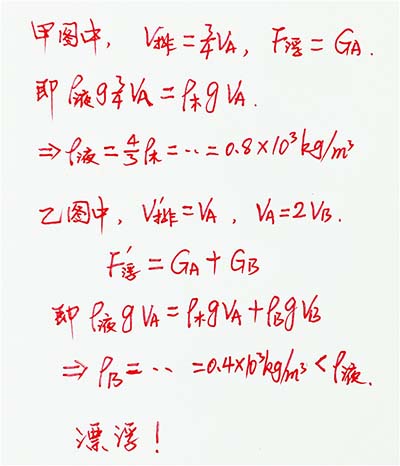 甲图中, V排=¾VA, F浮=GA.
即 ρ液g¾VA=ρ木gVA.
⇒ρ液=4/3ρ木=…=0.8×10³kg/m³
乙图中, V′排=VA, VA=2VB.
F′浮=GA+GB
即 ρ液gVA=ρ木gVA+ρBgVB
⇒ρB=…=0.4×10³kg/m³<ρ液.
漂浮!